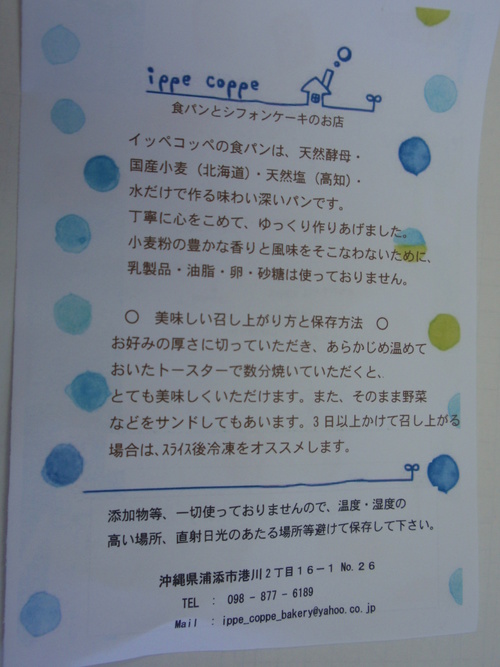 ippe coppe
食パンとシフォンケーキのお店
イッペコッペの食パンは、天然酵母・
国産小麦(北海道)・天然塩(高知)・
水だけで作る味わい深いパンです。
丁寧に心をこめて、ゆっくり作りあげました。
小麦粉の豊かな香りと風味をそこなわないために、
乳製品・油脂・卵・砂糖は使っておりません。
○ 美味しい召し上がり方と保存方法 ○
お好みの厚さに切っていただき、あらかじめ温めて
おいたトースターで数分焼いていただくと、
とても美味しくいただけます。また、そのまま野菜
などをサンドしてもあいます。3日以上かけて召し上がる
場合は、スライス後冷凍をオススメします。
添加物等、一切使っておりませんので、温度・湿度の
高い場所、直射日光のあたる場所等避けて保存して下さい。
沖縄県浦添市港川2丁目16-1 No.26
TEL : 098-877-6189
Mail : ippe_coppe_bakery@yahoo.co.jp